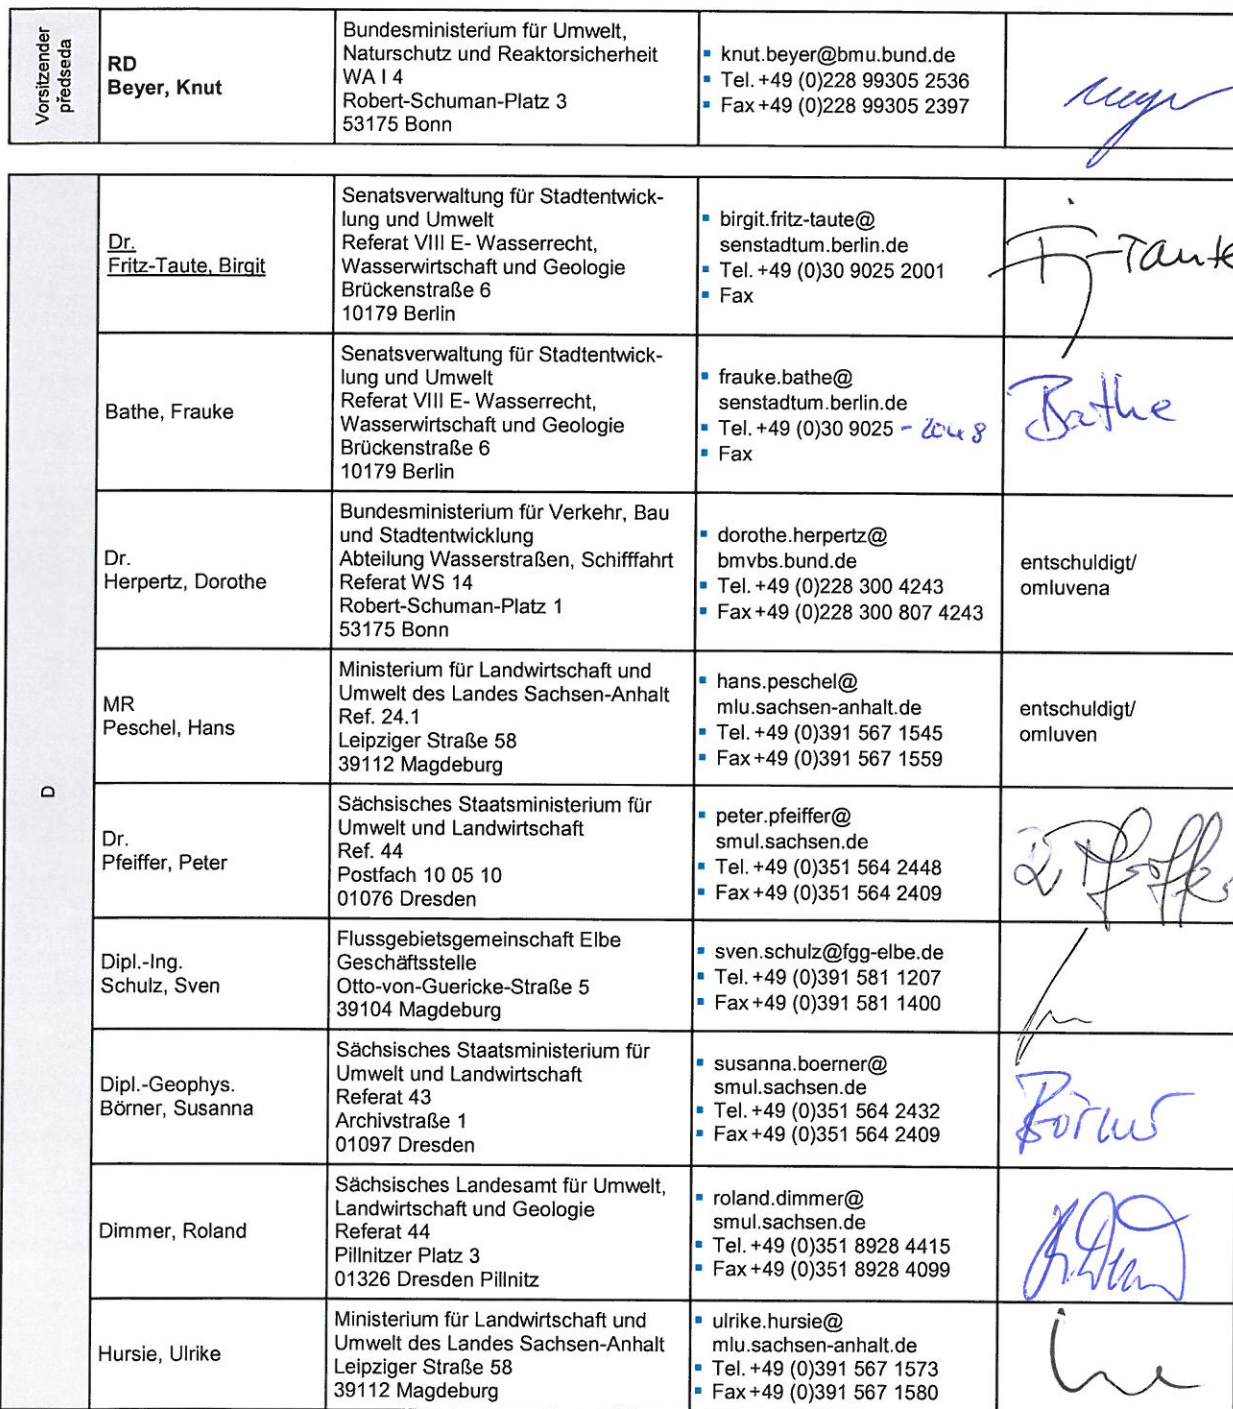 Vorsitzender
předseda
RD
Beyer, Knut
Bundesministerium für Umwelt,
Naturschutz und Reaktorsicherheit
WA I 4
Robert-Schuman-Platz 3
53175 Bonn
▪ knut.beyer@bmu.bund.de
▪ Tel. +49 (0)228 99305 2536
▪ Fax +49 (0)228 99305 2397
D
Dr.
Fritz-Taute, Birgit
Senatsverwaltung für Stadtentwick-
lung und Umwelt
Referat VIII E- Wasserrecht,
Wasserwirtschaft und Geologie
Brückenstraße 6
10179 Berlin
▪ birgit.fritz-taute@
senstadtum.berlin.de
▪ Tel. +49 (0)30 9025 2001
▪ Fax
-Taute
Bathe, Frauke
Senatsverwaltung für Stadtentwick-
lung und Umwelt
Referat VIII E- Wasserrecht,
Wasserwirtschaft und Geologie
Brückenstraße 6
10179 Berlin
▪ frauke.bathe@
senstadtum.berlin.de
▪ Tel. +49 (0)30 9025 - 2048
▪ Fax
Bathe
Dr.
Herpertz, Dorothe
Bundesministerium für Verkehr, Bau
und Stadtentwicklung
Abteilung Wasserstraßen, Schifffahrt
Referat WS 14
Robert-Schuman-Platz 1
53175 Bonn
▪ dorothe.herpertz@
bmvbs.bund.de
▪ Tel. +49 (0)228 300 4243
▪ Fax +49 (0)228 300 807 4243
entschuldigt/
omluvena
MR
Peschel, Hans
Ministerium für Landwirtschaft und
Umwelt des Landes Sachsen-Anhalt
Ref. 24.1
Leipziger Straße 58
39112 Magdeburg
▪ hans.peschel@
mlu.sachsen-anhalt.de
▪ Tel. +49 (0)391 567 1545
▪ Fax +49 (0)391 567 1559
entschuldigt/
omluven
Dr.
Pfeiffer, Peter
Sächsisches Staatsministerium für
Umwelt und Landwirtschaft
Ref. 44
Postfach 10 05 10
01076 Dresden
▪ peter.pfeiffer@
smul.sachsen.de
▪ Tel. +49 (0)351 564 2448
▪ Fax +49 (0)351 564 2409
Dipl.-Ing.
Schulz, Sven
Flussgebietsgemeinschaft Elbe
Geschäftsstelle
Otto-von-Guericke-Straße 5
39104 Magdeburg
▪ sven.schulz@fgg-elbe.de
▪ Tel. +49 (0)391 581 1207
▪ Fax +49 (0)391 581 1400
Dipl.-Geophys.
Börner, Susanna
Sächsisches Staatsministerium für
Umwelt und Landwirtschaft
Referat 43
Archivstraße 1
01097 Dresden
▪ susanna.boerner@
smul.sachsen.de
▪ Tel. +49 (0)351 564 2432
▪ Fax +49 (0)351 564 2409
Börner
Dimmer, Roland
Sächsisches Landesamt für Umwelt,
Landwirtschaft und Geologie
Referat 44
Pillnitzer Platz 3
01326 Dresden Pillnitz
▪ roland.dimmer@
smul.sachsen.de
▪ Tel. +49 (0)351 8928 4415
▪ Fax +49 (0)351 8928 4099
Hursie, Ulrike
Ministerium für Landwirtschaft und
Umwelt des Landes Sachsen-Anhalt
Leipziger Straße 58
39112 Magdeburg
▪ ulrike.hursie@
mlu.sachsen-anhalt.de
▪ Tel. +49 (0)391 567 1573
▪ Fax +49 (0)391 567 1580